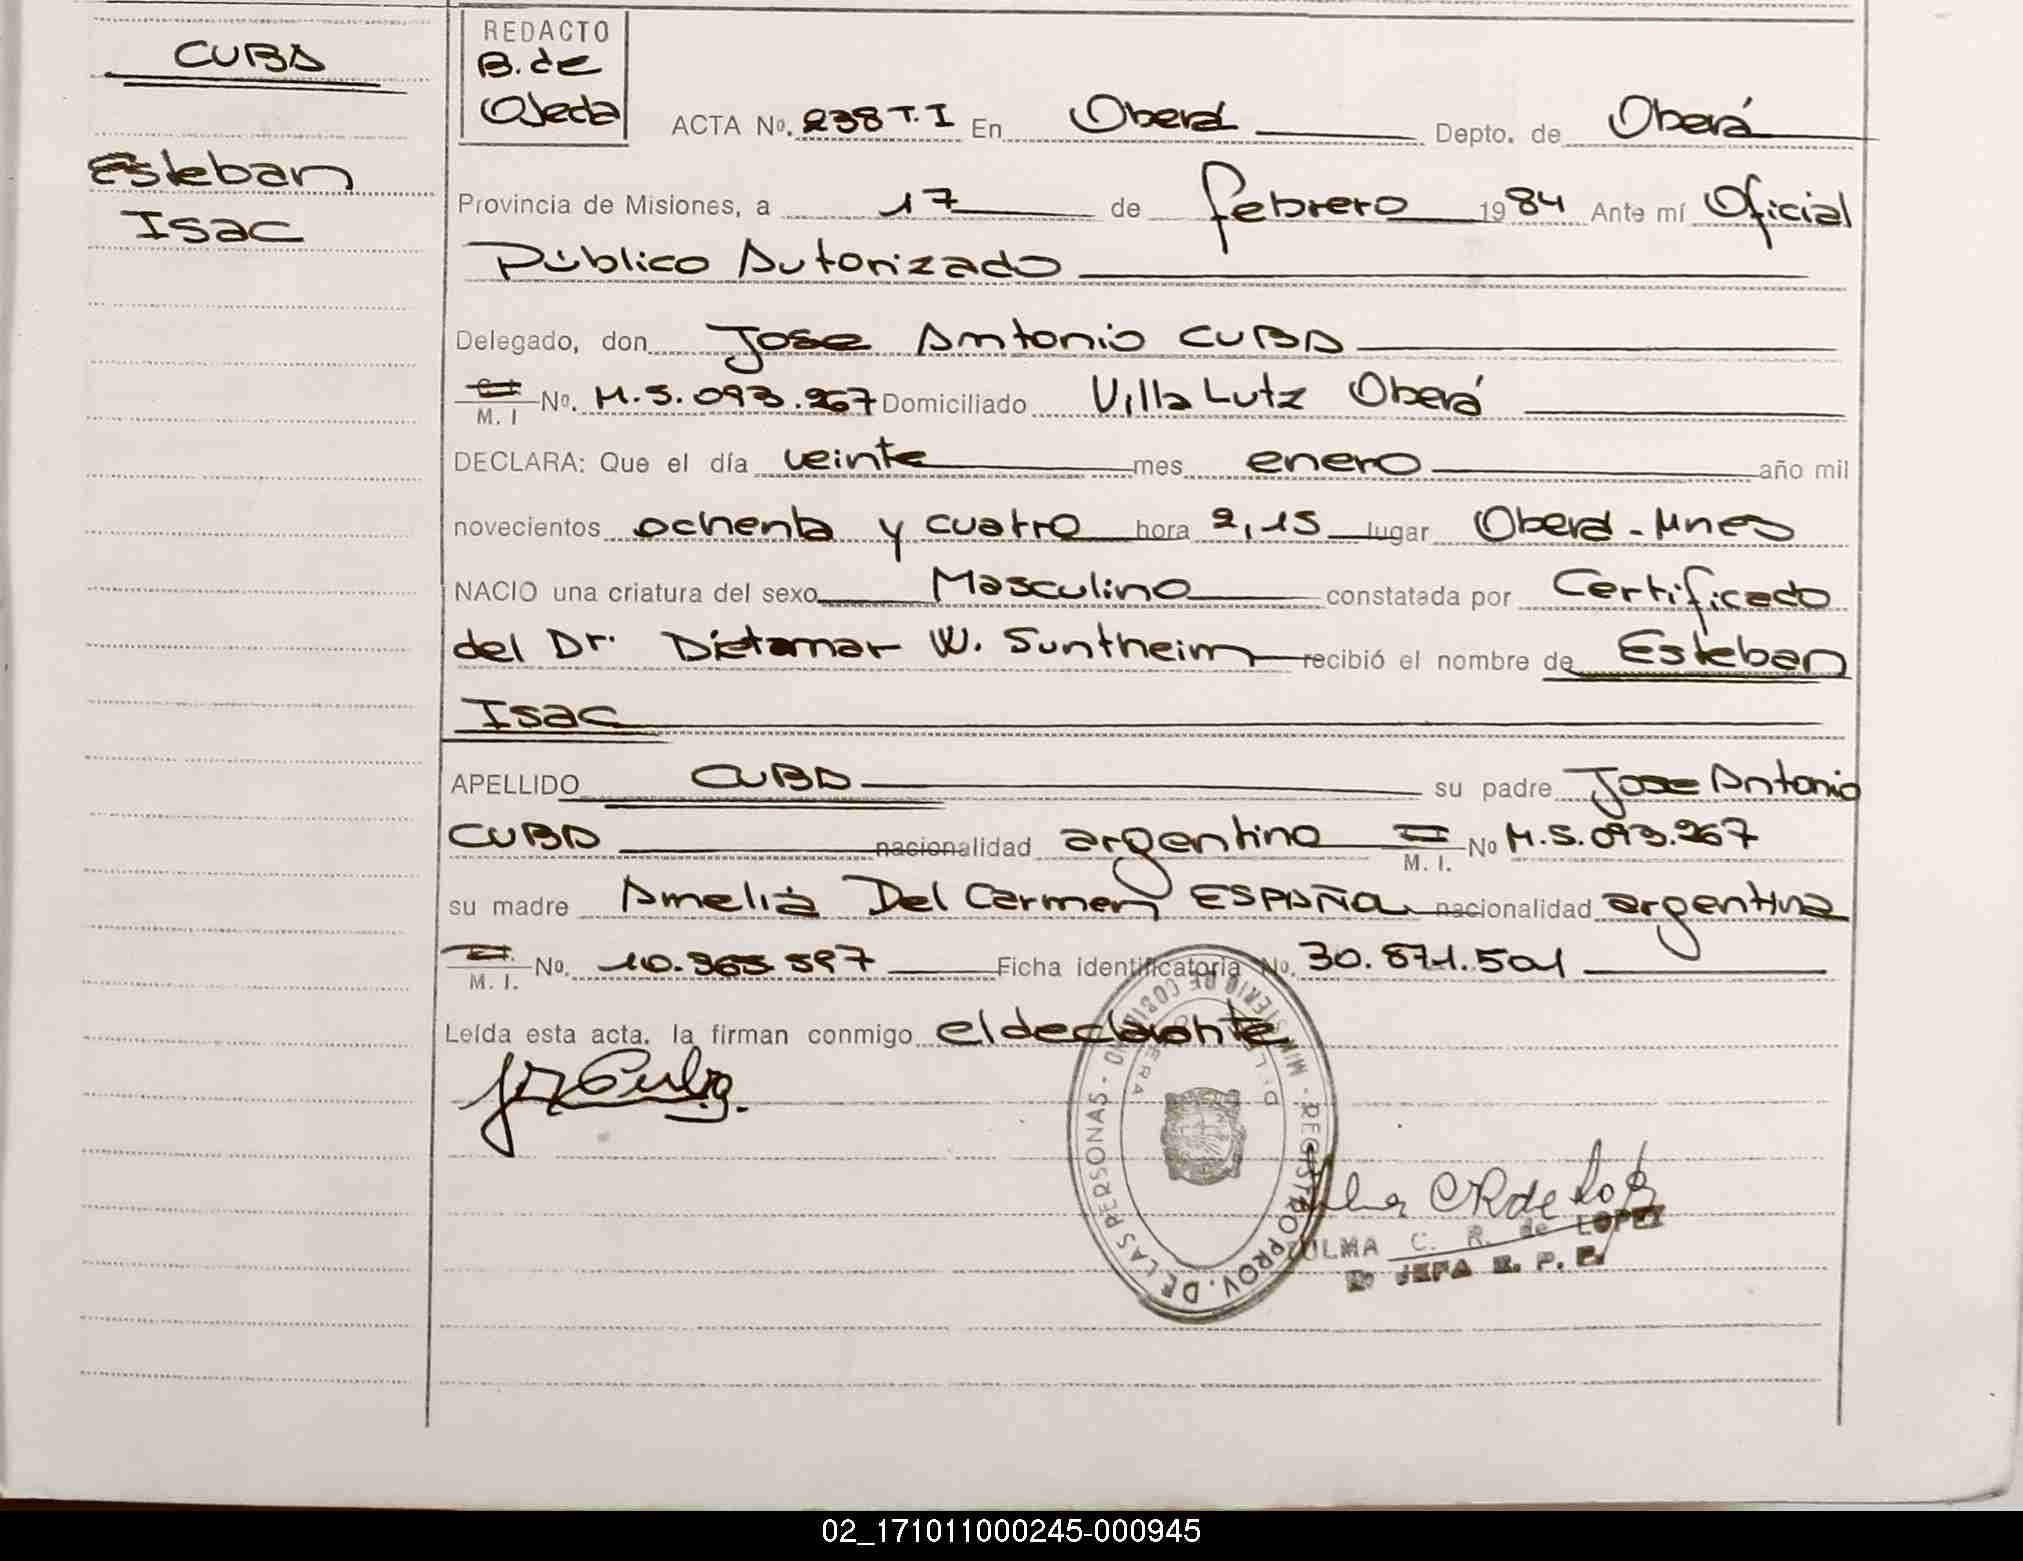 CUBA
Esteban
Isac
REDACTO
B. de
Ojeda
ACTA No. 238 T. I En Oberá Depto. de Oberá
Provincia de Misiones, a 17 de febrero 1984 Ante mí Oficial
Público Autorizado
Delegado, don Jose Antonio CUBA
M. I No. M.5.093.267 Domiciliado Villa Lutz Oberá
DECLARA: Que el día veinte mes enero año mil
novecientos ochenta y cuatro hora 2,15 lugar Oberá - Mnes
NACIO una criatura del sexo Masculino constatada por Certificado
del Dr. Dietamar W. Suntheim recibió el nombre de Esteban
Isac
APELLIDO CUBA su padre Jose Antonio
CUBA nacionalidad argentino M. I. No M.5.093.267
su madre Amelia Del Carmen ESPAÑA nacionalidad argentina
M. I. No. 10.365.597 Ficha identificatoria No. 30.871.501
Leída esta acta, la firman conmigo el declarante
MINISTERIO DE GOBIERNO - REGISTRO PROV. DE LAS PERSONAS -
ZULMA C. R. de LOPEZ
JEFA R. P. P.
02_171011000245-000945